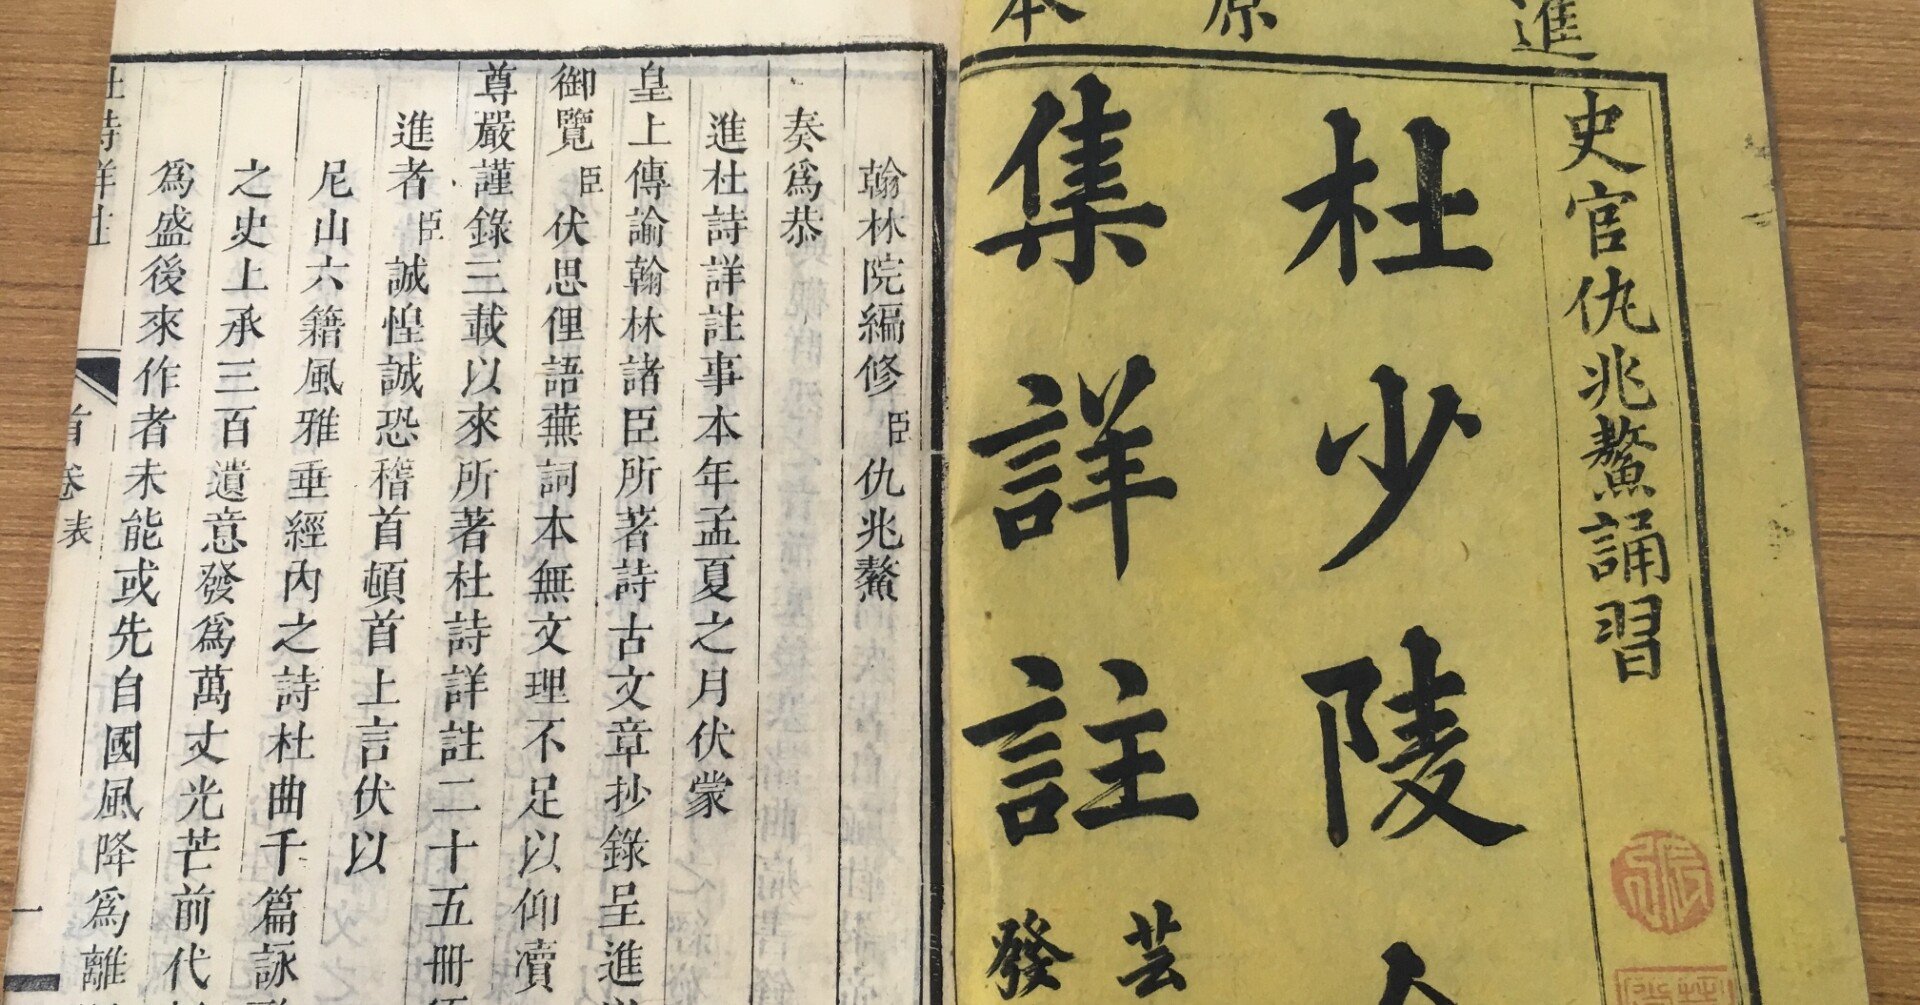 進
原
本
史官仇兆鰲誦習
杜少陵
集詳註
芸
發
翰林院編修臣仇兆鰲
奏爲恭
進杜詩詳註事本年孟夏之月伏蒙
皇上傳諭翰林諸臣所著詩古文章抄錄呈進
御覽臣伏思俚語蕪詞本無文理不足以仰瀆
尊嚴謹錄三載以來所著杜詩詳註二十五冊
進者臣誠惶誠恐稽首頓首上言伏以
尼山六籍風雅垂經內之詩杜曲千篇詠
之史上承三百遺意發爲萬丈光芒前代
爲盛後來作者未能或先自國風降爲離
杜詩詳註
首卷表
一